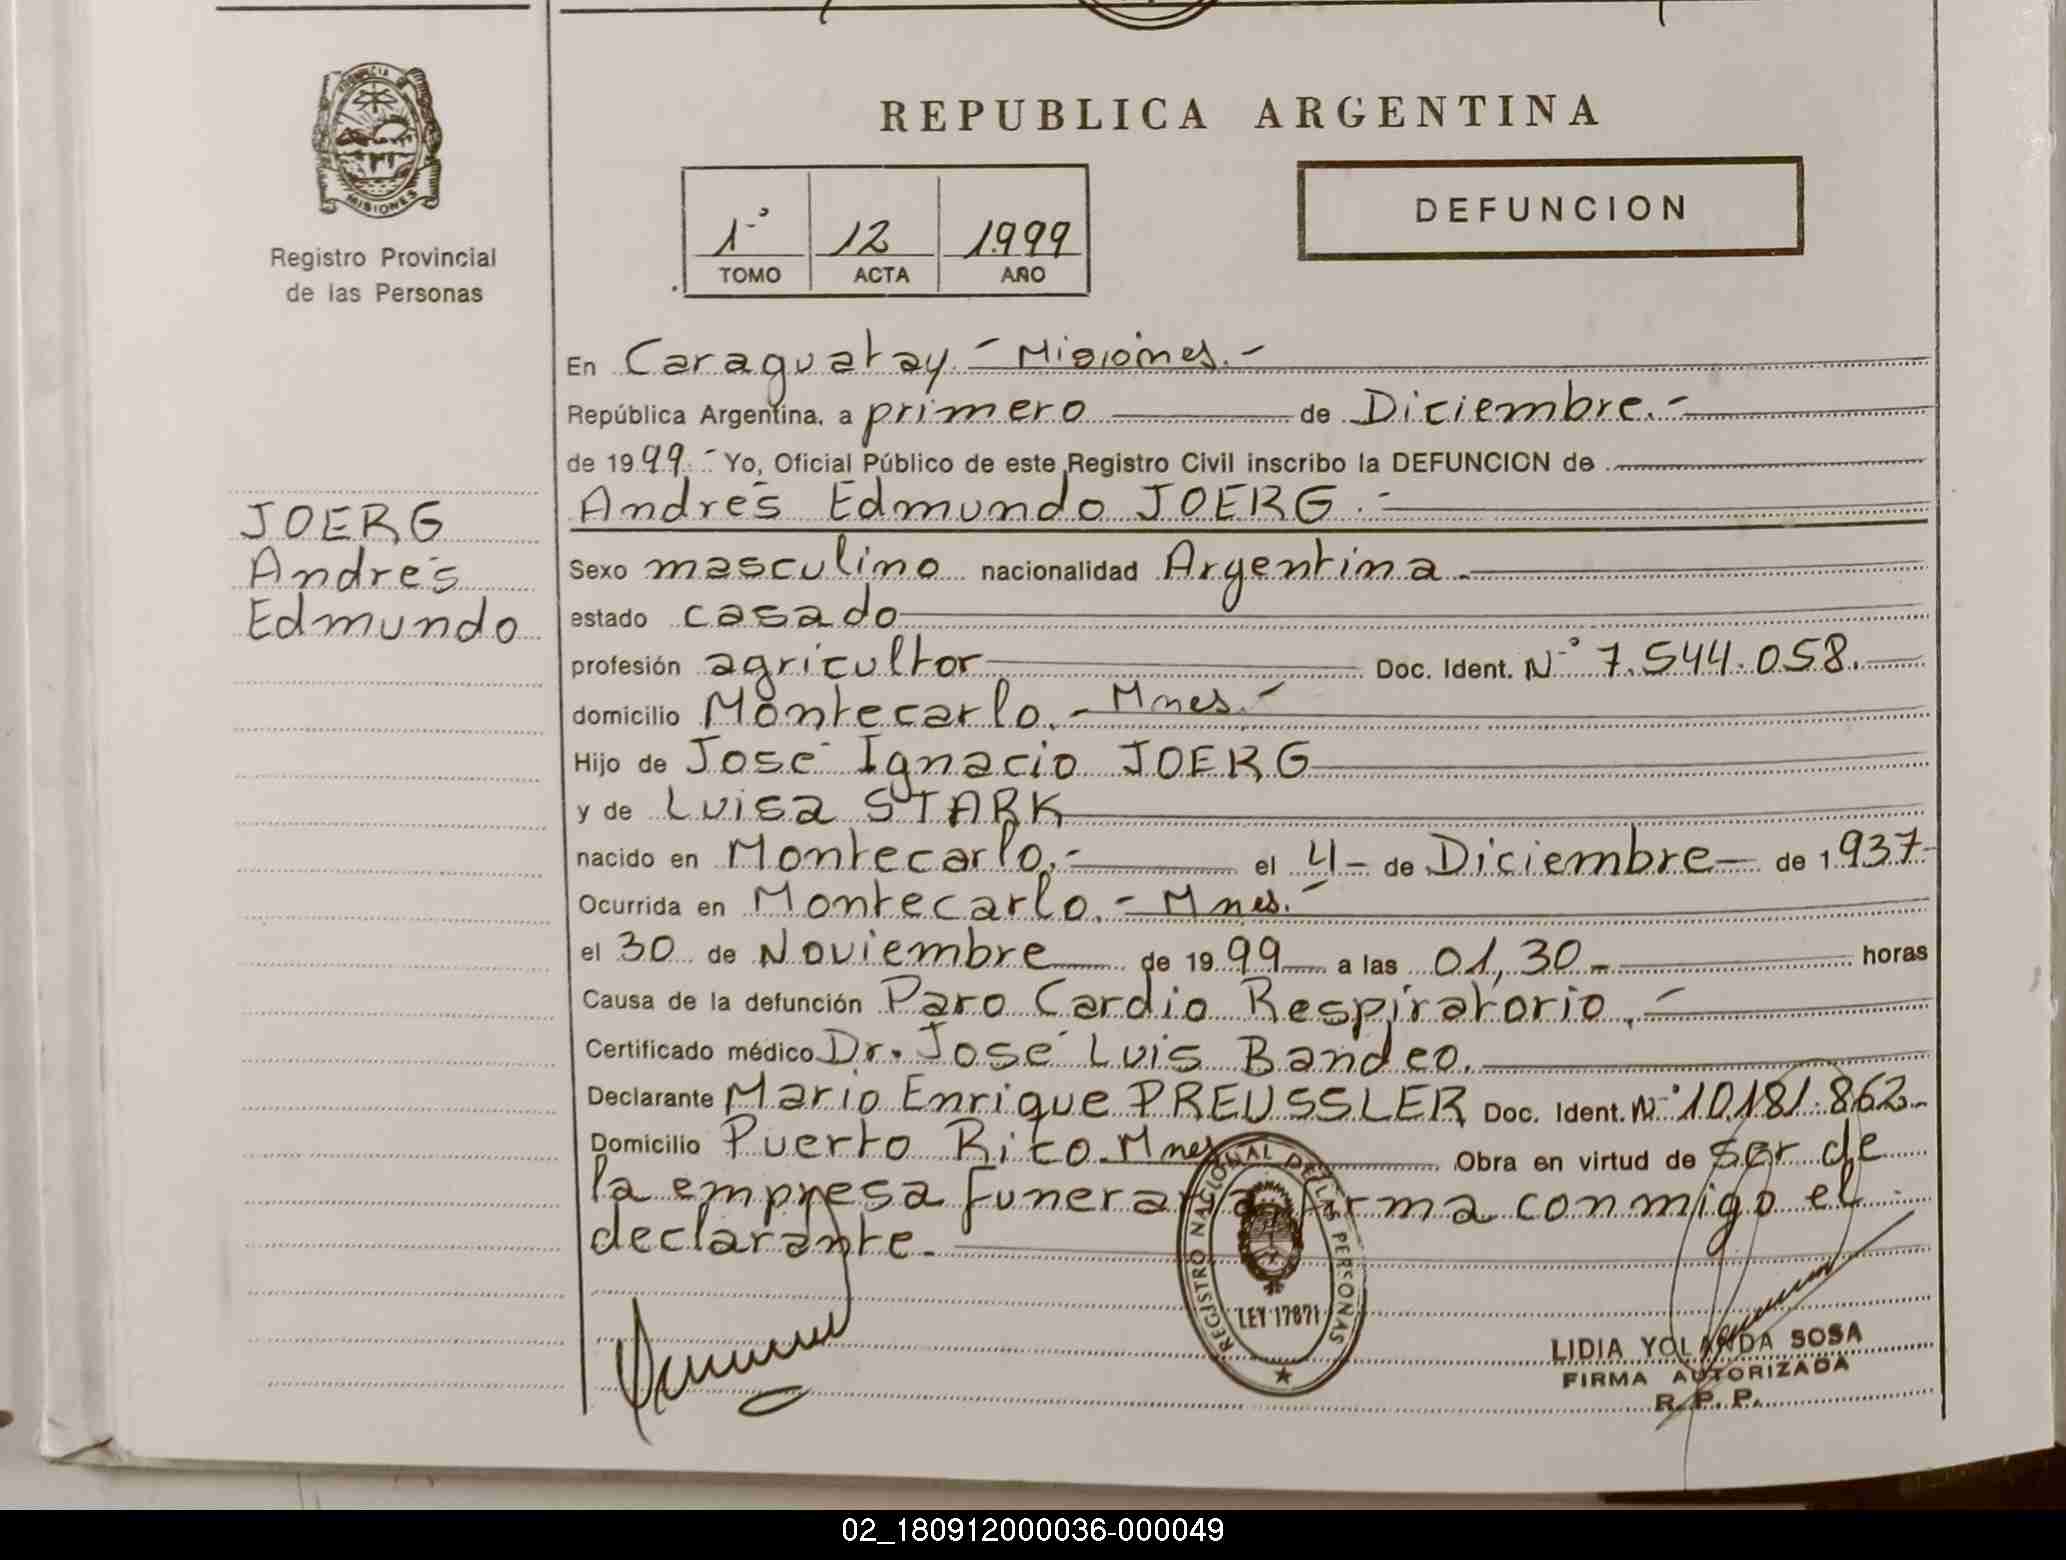 PROVINCIA DE
MISIONES
Registro Provincial
de las Personas
REPUBLICA ARGENTINA
1º 12 1999
TOMO ACTA AÑO
DEFUNCION
En Caraguatay - Misiones.-
República Argentina, a primero de Diciembre.-
de 1999.- Yo, Oficial Público de este Registro Civil inscribo la DEFUNCION de
Andrés Edmundo JOERG.-
JOERG
Andrés
Edmundo
Sexo masculino nacionalidad Argentina.
estado casado
profesión agricultor Doc. Ident. Nº 7.544.058.
domicilio Montecarlo.- Mnes.-
Hijo de José Ignacio JOERG
y de Luisa STARK
nacido en Montecarlo.- el 4- de Diciembre- de 1937-
Ocurrida en Montecarlo.- Mnes.-
el 30 de Noviembre de 1999 a las 01,30.- horas
Causa de la defunción Paro Cardio Respiratorio.-
Certificado médico Dr. José Luis Bandeo.
Declarante Mario Enrique PREUSSLER Doc. Ident. Nº 10.181.862-
Domicilio Puerto Rico.Mnes Obra en virtud de ser de
la empresa funeraria, firma conmigo el
declarante.-
REGISTRO NACIONAL DE LAS PERSONAS
LEY 17671
LIDIA YOLANDA SOSA
FIRMA AUTORIZADA
R. P. P.
02_180912000036-000049